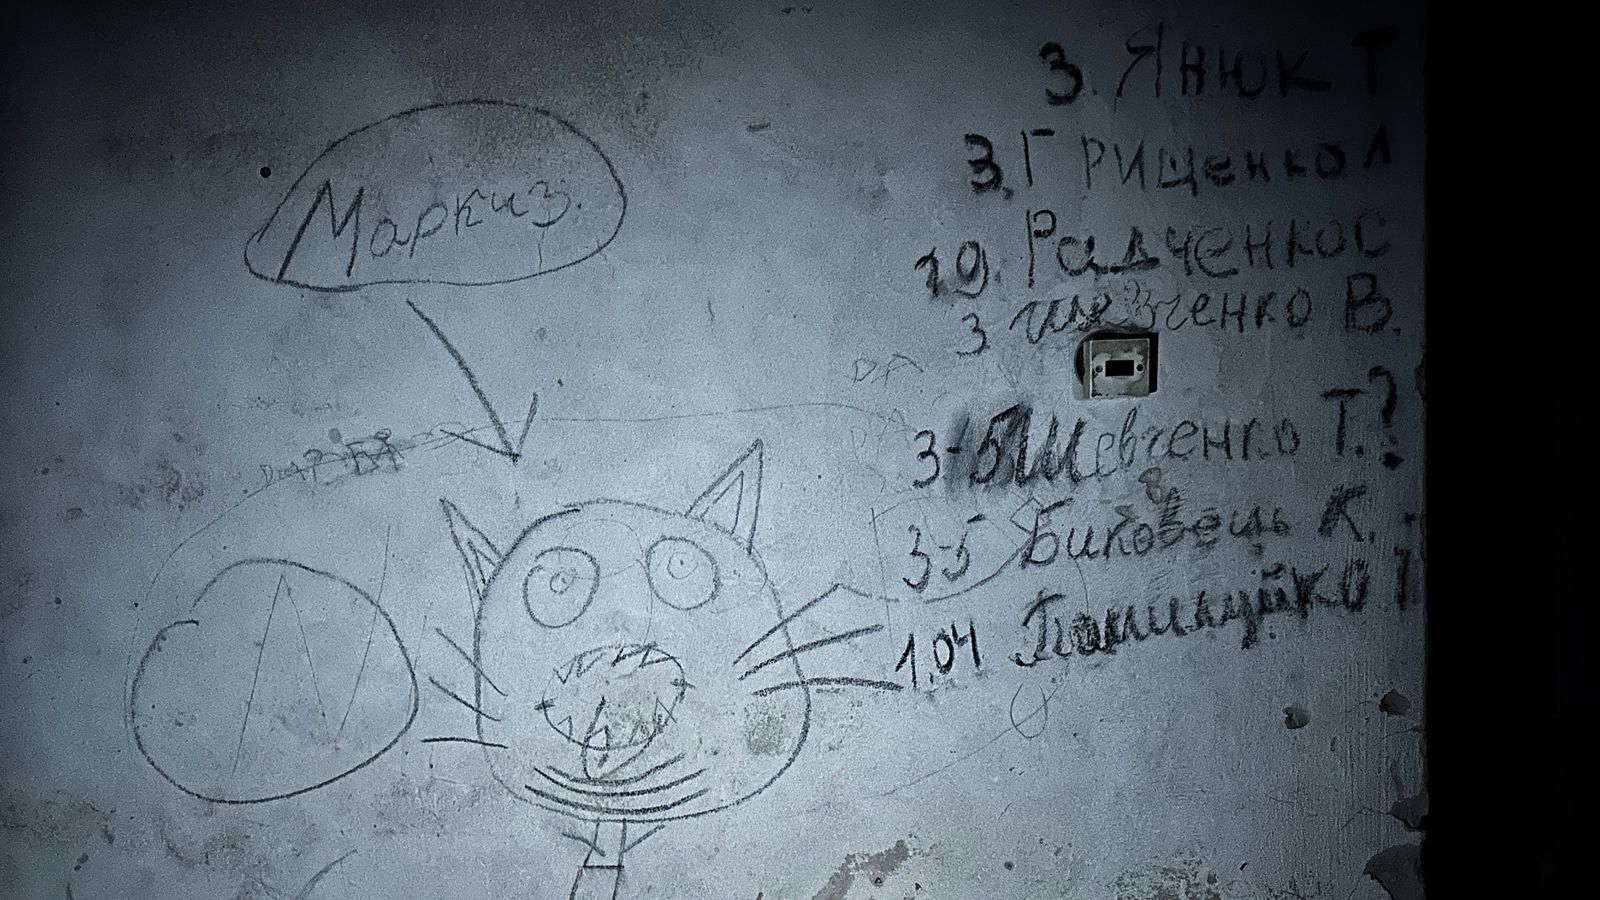 Маркиз.
3. Янюк Т
3. Грищенко Л
19. Радченко С
3 Шевченко В.
ДА
3-5 Шевченко Т.?
3-5 Биковець К.
1.04